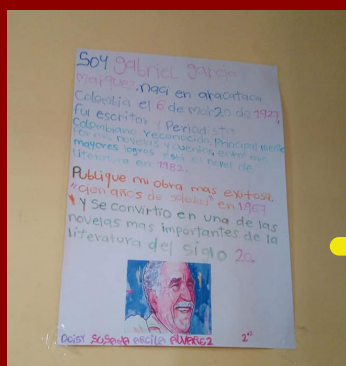 Soy gabriel garcia
marquez, naci en aracataca
Colombia el 6 de marzo de 1927,
fui escritor y Periodista
Colombiano reconocido principalmente
por mis novelas y cuentos, entre mis
mayores logros está el nobel de
literatura en 1982.
Publique mi obra mas exitosa.
"cien años de soledad" en 1967
y se convirtio en una de las
novelas mas importantes de la
literatura del siglo 20.
SUSANA ARCILA ALVAREZ 2°